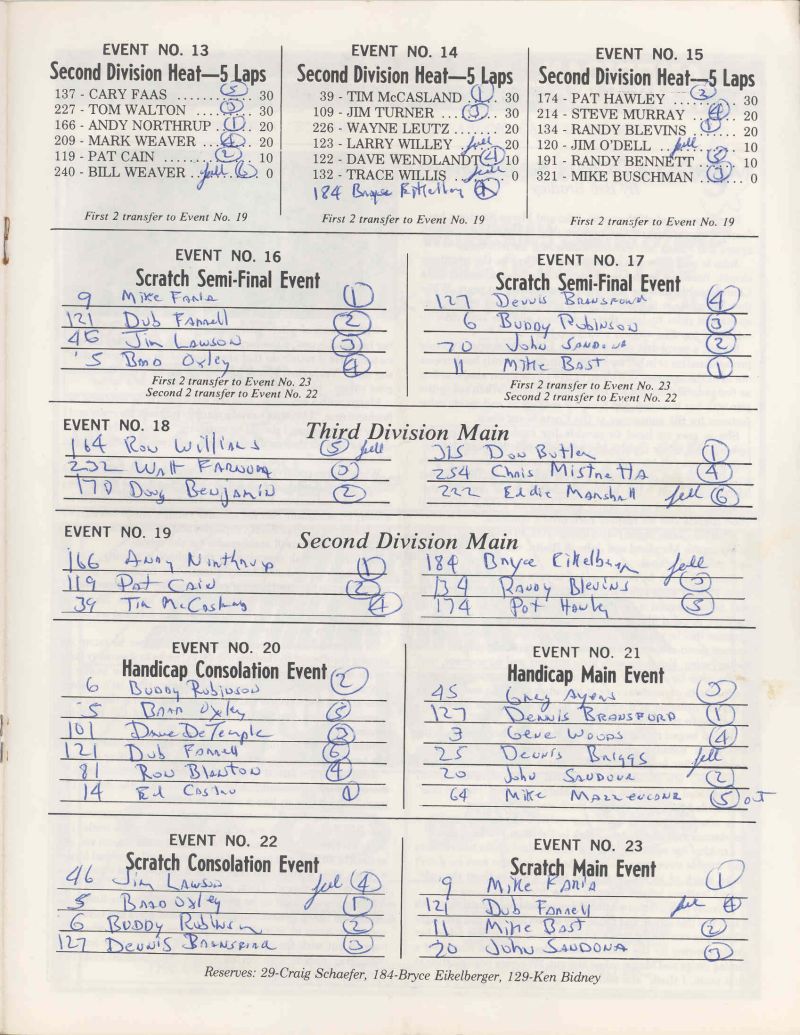 EVENT NO. 13
Second Division Heat—5 Laps
137 - CARY FAAS ........ (5) .. 30
227 - TOM WALTON ..... (3) .. 30
166 - ANDY NORTHRUP . (1) .. 20
209 - MARK WEAVER .... (4) .. 20
119 - PAT CAIN ....... (2) .. 10
240 - BILL WEAVER .. fell .. (6) 0
First 2 transfer to Event No. 19
EVENT NO. 14
Second Division Heat—5 Laps
39 - TIM McCASLAND (1) .. 30
109 - JIM TURNER .... (3) .. 30
226 - WAYNE LEUTZ ....... 20
123 - LARRY WILLEY . fell .. 20
122 - DAVE WENDLANDT (4) 10
132 - TRACE WILLIS .. fell .. 0
184 Bryce Eikelberg (2)
First 2 transfer to Event No. 19
EVENT NO. 15
Second Division Heat—5 Laps
174 - PAT HAWLEY .. (2) .... 30
214 - STEVE MURRAY . (4) .. 20
134 - RANDY BLEVINS . (1) ... 20
120 - JIM O'DELL .. fell ..... 10
191 - RANDY BENNETT . (5) .. 10
321 - MIKE BUSCHMAN . (3) .. 0
First 2 transfer to Event No. 19
EVENT NO. 16
Scratch Semi-Final Event
9 Mike Faria (1)
121 Dub Farrell (2)
46 Jim Lawson (3)
5 Brad Oxley (4)
First 2 transfer to Event No. 23
Second 2 transfer to Event No. 22
EVENT NO. 17
Scratch Semi-Final Event
127 Dennis Bransford (4)
6 Buddy Robinson (3)
20 John Sandona (2)
11 Mike Bast (1)
First 2 transfer to Event No. 23
Second 2 transfer to Event No. 22
EVENT NO. 18
Third Division Main
164 Ron Williams (5) fell
232 Walt Farnum (3)
170 Doug Benjamin (2)
315 Don Butler (1)
254 Chris Mistretta (4)
222 Eddie Marshall fell (6)
EVENT NO. 19
Second Division Main
166 Andy Northrup (1)
119 Pat Cain (2)
39 Tim McCasland (4)
184 Bryce Eikelberg fell
134 Randy Blevins (3)
174 Pat Hawley (5)
EVENT NO. 20
Handicap Consolation Event
6 Buddy Robinson (2)
5 Brad Oxley (5)
101 Dave DeTemple (3)
121 Dub Farrell (6)
81 Ron Blanton (4)
14 Ed Castro (1)
EVENT NO. 21
Handicap Main Event
45 Greg Ayers (3)
127 Dennis Bransford (1)
3 Gene Woods (4)
25 Dennis Briggs fell
20 John Sandona (2)
64 Mike Mazzencone (5) out
EVENT NO. 22
Scratch Consolation Event
46 Jim Lawson fell (4)
5 Brad Oxley (1)
6 Buddy Robinson (2)
127 Dennis Bransford (3)
EVENT NO. 23
Scratch Main Event
9 Mike Faria (1)
121 Dub Farrell fell (4)
11 Mike Bast (2)
20 John Sandona (3)
Reserves: 29-Craig Schaefer, 184-Bryce Eikelberger, 129-Ken Bidney